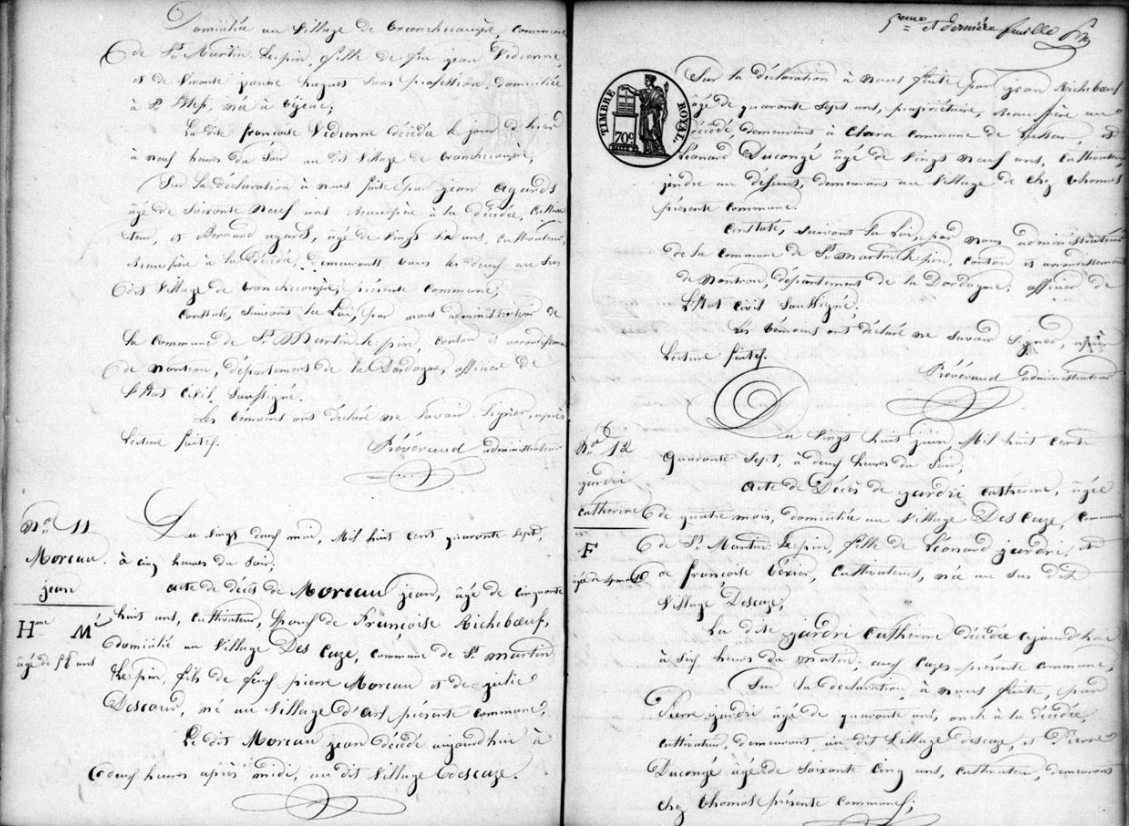 Domiciliée au village de
de St. Martin Lepin, fille de feu jean Vedrenne,
et de vivante jeanne hugues sans profession, domiciliée
à St. née à
La dite françoise Vedrenne décéda le jour d'hier
à neuf heures du soir au dit village de
Sur la déclaration à nous faite par jean agards
âgé de soixante neuf ans beaupère à la décédée, cultiva-
teur, et Bernard agards, âgé de vingt six ans, cultivateur,
beaufrère à la décédée, demeurants tous les deux au sus
dit village de présente commune;
Constaté, suivant la Loi, par nous administrateur de
la commune de St. Martin le pin, canton et arrondissem
de nontron, département de la Dordogne, officier de
l'état civil, soussigné.
Les témoins ont déclaré ne savoir signer, après
Lecture faite.
Prévéraud administrateur
No. 11
Moreau
jean
Hme M
âgé de 58 ans
Du vingt deux mai, Mil huit cent quarante sept,
à cinq heures du soir,
acte de décès de Moreau jean, âgé de cinquante
huit ans, cultivateur, époux de Françoise Richebœuf,
domicilié au village Des Caze, commune de St. martin
Lepin, fils de feus pierre Moreau et de julie
Descour, né au village d'art présente commune,
Le dit Moreau jean décédé aujourd'hui à
deux heures après midi, au dit village descaze.
5eme et dernière feuille
TIMBRE ROYAL
70c
Sur la déclaration à nous faite par jean Richebœuf
âgé de quarante sept ans, propriétaire, beaufrère au
décédé, demeurant à Clara commune de Lussas et
Léonard Ducongé âgé de vingt neuf ans, cultivateur
jendre au défunt, demeurant au village de chez thomas
présente commune.
Constaté, suivant la Loi, par nous administrateur
de la commune de St. martin le pin, canton et arrondissement
de Nontron, département de la Dordogne, officier de
l'état civil soussigné;
Les témoins ont déclaré ne savoir signer, après
Lecture faite.
Prévéraud administrateur
No. 12
jardri
catherine
F
âgée de 4 mois
Du vingt huit juin Mil huit cent
quarante sept, à deux heures du soir,
acte de Décès de jardri catherine, âgée
de quatre mois, domiciliée au village Des Caze, commune
de St. Martin Lepin, fille de Léonard jardri, et
de françoise térier, cultivateurs, née au sus dit
village Descaze,
La dite jardri catherine décédée cejourd'hui
à six heures du matin, aux cazes présente commune,
Sur la déclaration à nous faite, par
Pierre jardri âgé de quarante ans, oncle à la décédée,
cultivateur, demeurant, au dit village descaze, et Pierre
Ducongé âgé de soixante cinq ans, cultivateur, demeurant
chez thomas présente commune;